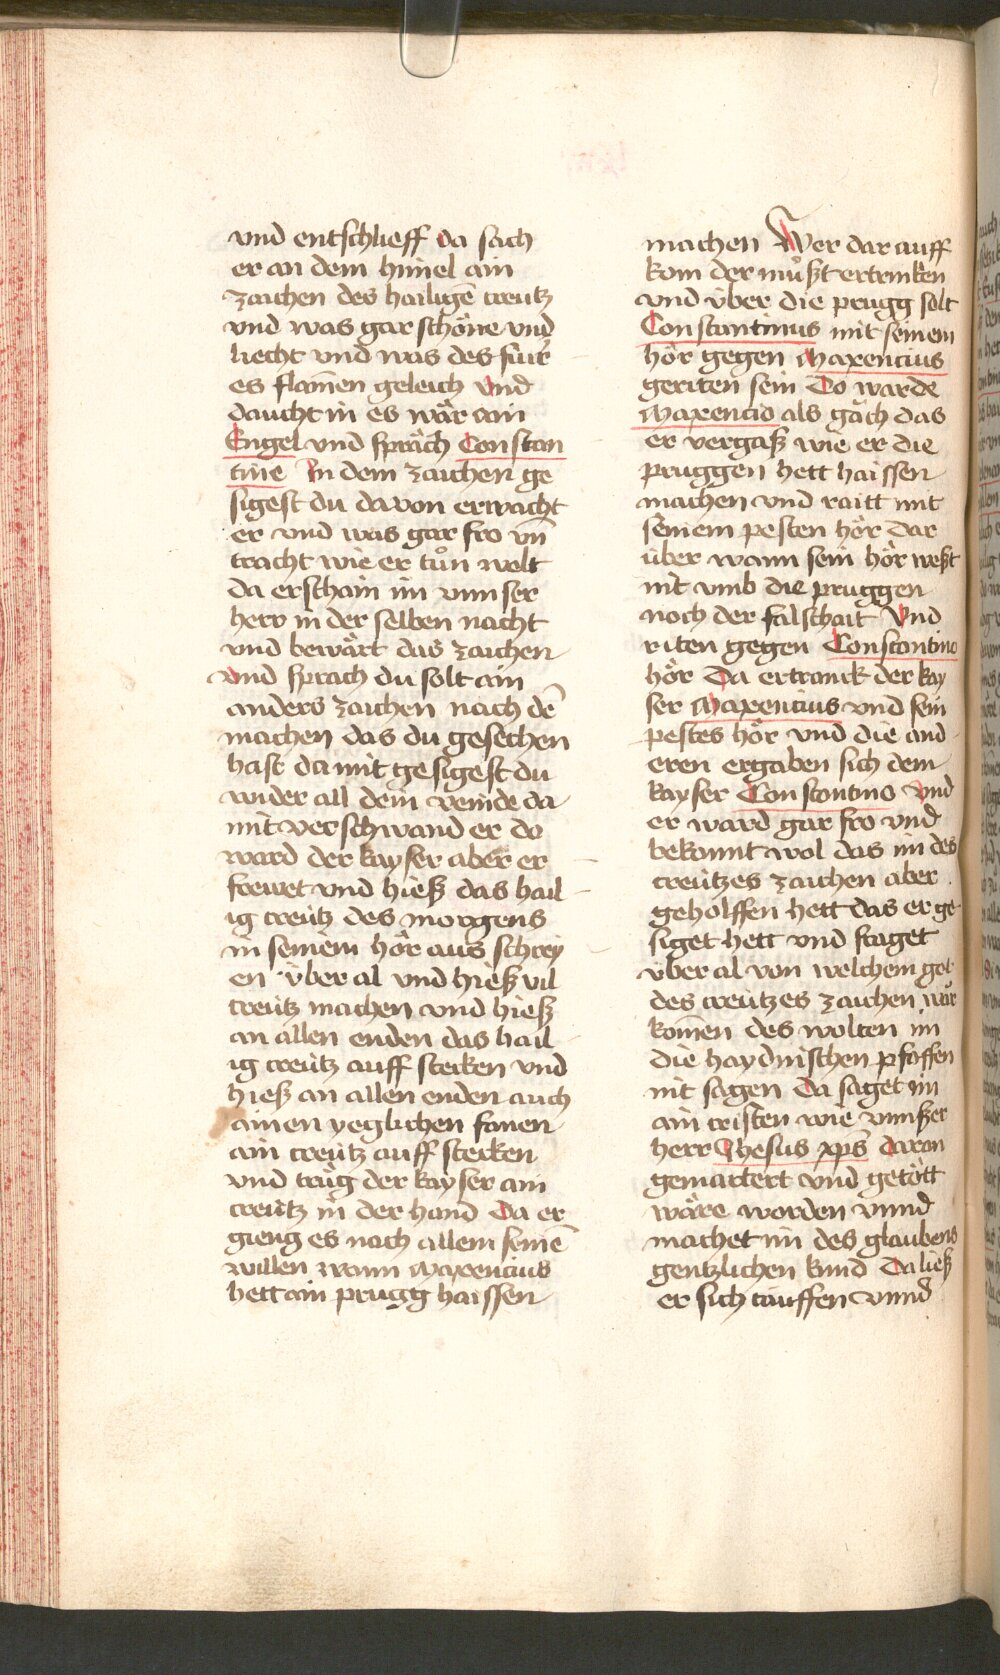 vnd entschlieff da sach
er an dem himel ain
zaichen des hailigē creutz
vnd was gar schöne vnd
liecht vnd was des fuͤr
es flamen geleich Vnd
daucht in es wär ain
Engel vnd sprăch Constan
tine In dem zaichen ge
sigest du da von erwacht
er vnd was gar fro vn̄
tracht wie er tůn welt
da erschain im vnnser
herr in der selben nacht
vnd bewärt das zaichen
vnd sprach du solt ain
anders zaichen nach dē
machen das du gesechen
hast da mit gesigest du
wider all dein veinde da
mit verschwand er do
ward der kayser aber er
frewet vnd hiesß das hail
ig creütz des morgens
in seinem hör aus schrey
en vber al vnd hiesß vil
creütz machen vnd hiesß
an allen enden das hail
ig creütz auff stecken vnd
hiesß an allen enden auch
ainen yeglichen fanen
ain creütz auff stecken
vnd trůg der kayser ain
creütz in der hand Da er
gieng es nach allem seinē
willen wann Maxencius
hett ain prugg haissen
machen Wer dar auff
kom der můßt ertrinken
vnd vber die prugg solt
Constantinus mit seinem
hör gegen Maxencius
geriten sein Do warde
Maxencio als gäch das
er vergasß wie er die
pruggen hett haissen
machen vnd raitt mit
seinem pesten hör dar
über wann sein hör weßt
nit vmb die pruggen
noch der falschait Vnd
riten gegen Constantino
hör Da ertranck der kay
ser Maxencius vnd sein
pestes hör vnd die and
eren ergaben sich dem
kayser Constantino Vnd
er ward gar fro vnd
bekannt wol das im des
creützes zaichen aber
geholffen hett das er ge
siget hett vnd fraget
vber al von welchem got
des creützes zaichen wär
komen des wolten im
die haydnischen pfaffen
nit sagen Da saget im
ain cristen wie vnnßer
herr Jhesus xp̄s daran
gemartert vnd getött
wäre worden vnnd
machet im des glaubens
gentzlichen kund Da liesß
er sich tauffen vnnd